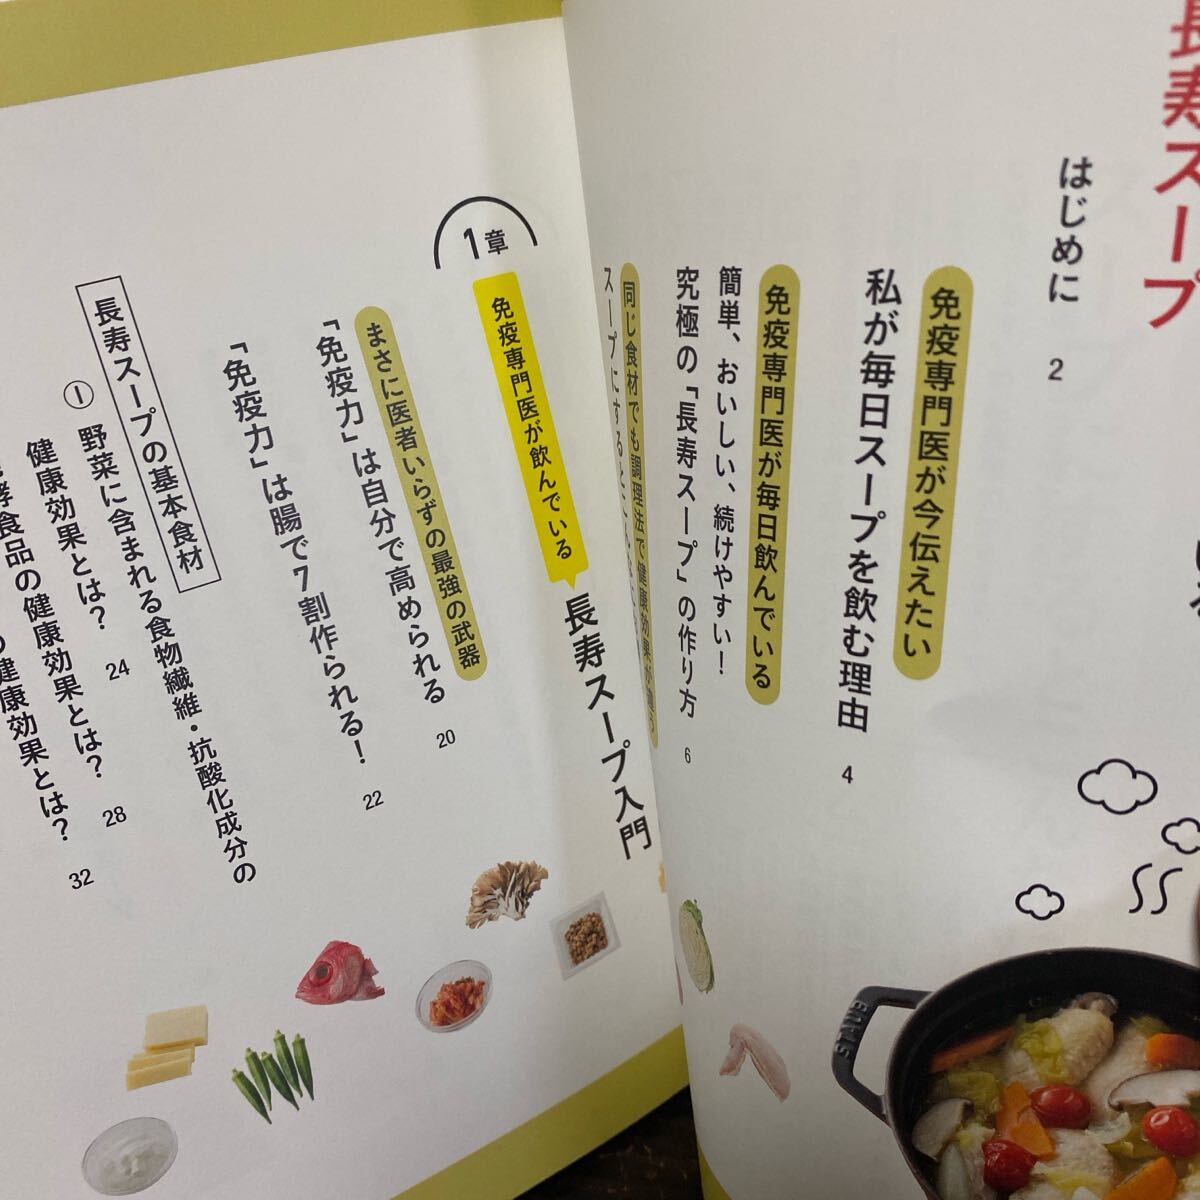 長寿スープ
はじめに
2
免疫専門医が今伝えたい
私が毎日スープを飲む理由
4
免疫専門医が毎日飲んでいる
簡単、おいしい、続けやすい!
究極の「長寿スープ」の作り方
6
同じ食材でも調理法で健康効果が違う
スープにすると
1章
免疫専門医が飲んでいる
長寿スープ入門
まさに医者いらずの最強の武器
「免疫力」は自分で高められる
20
「免疫力」は腸で7割作られる!
22
長寿スープの基本食材
① 野菜に含まれる食物繊維・抗酸化成分の
健康効果とは?
24
酵食品の健康効果とは?
28
健康効果とは?
32
STAUB